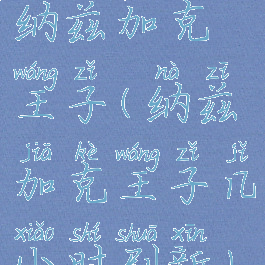 纳兹加克
wáng zǐ nà zī
王子(纳兹
jiā kè wáng zǐ jǐ
加克王子几
xiǎo shí shuā xīn
小时刷新)